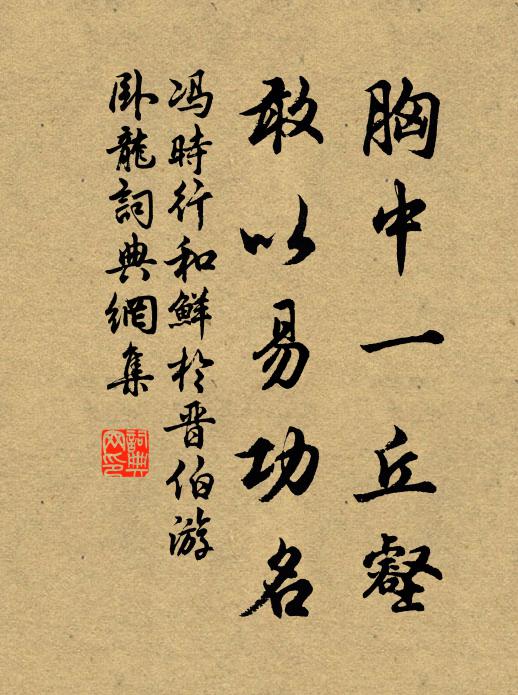 胸中一丘壑
敢以易功名
冯時行和鮮於晋伯游
卧龍詞典網集
詞典網印